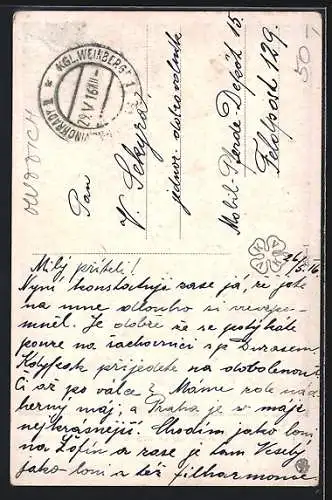 KGL. WEINBERGE 1
29.V.16 XII
VINOHRADY 1
50.-
Pan
V. Sekyra,
jednor. dobrovolník
Mobil-Pferde-Depôt 15.
Feldpost 129.
V K V K
26/5.16
Milý příteli!
Nyní konstatuji zase já, že jste
na mne dlouho si nevzpo-
mněl. Je dobře že se potýkáte
pouze na šachovnici s p. Durasem.
Kdypak přijedete na dovolenou?
Či až po válce? Máme zde nád
herný máj, a Praha je v máji
nejkrásnější. Chodím jako loni
na Žofín a zase je tam Veselý
jako loni a též filharmonie